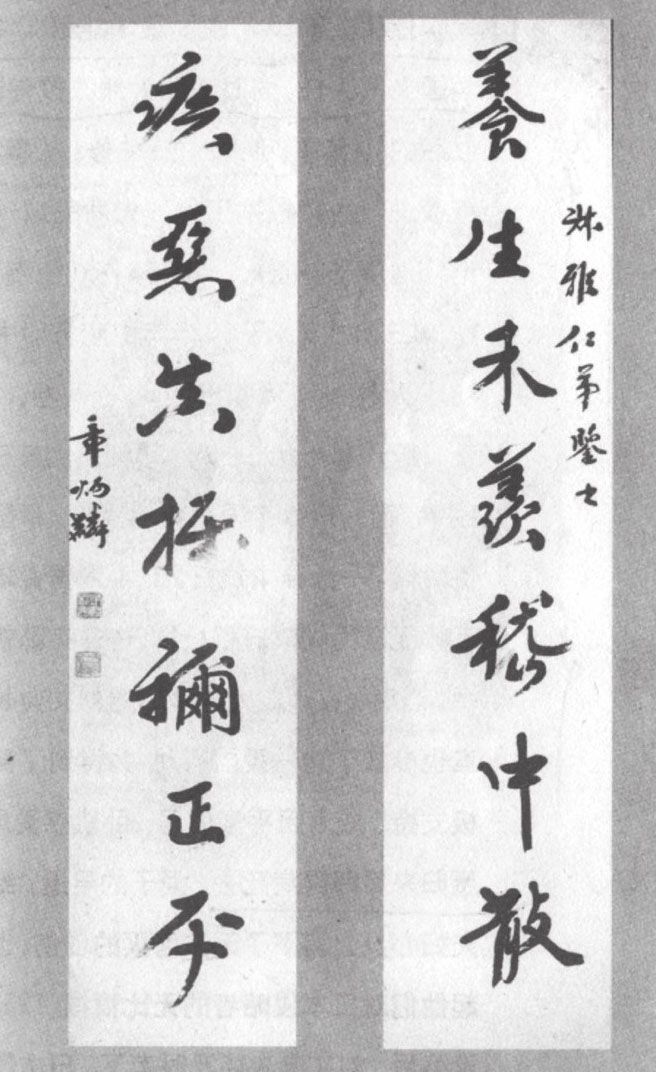 養生未羨嵇中散
雅仁弟鑒之
疾惡真推禰正平
章炳麟